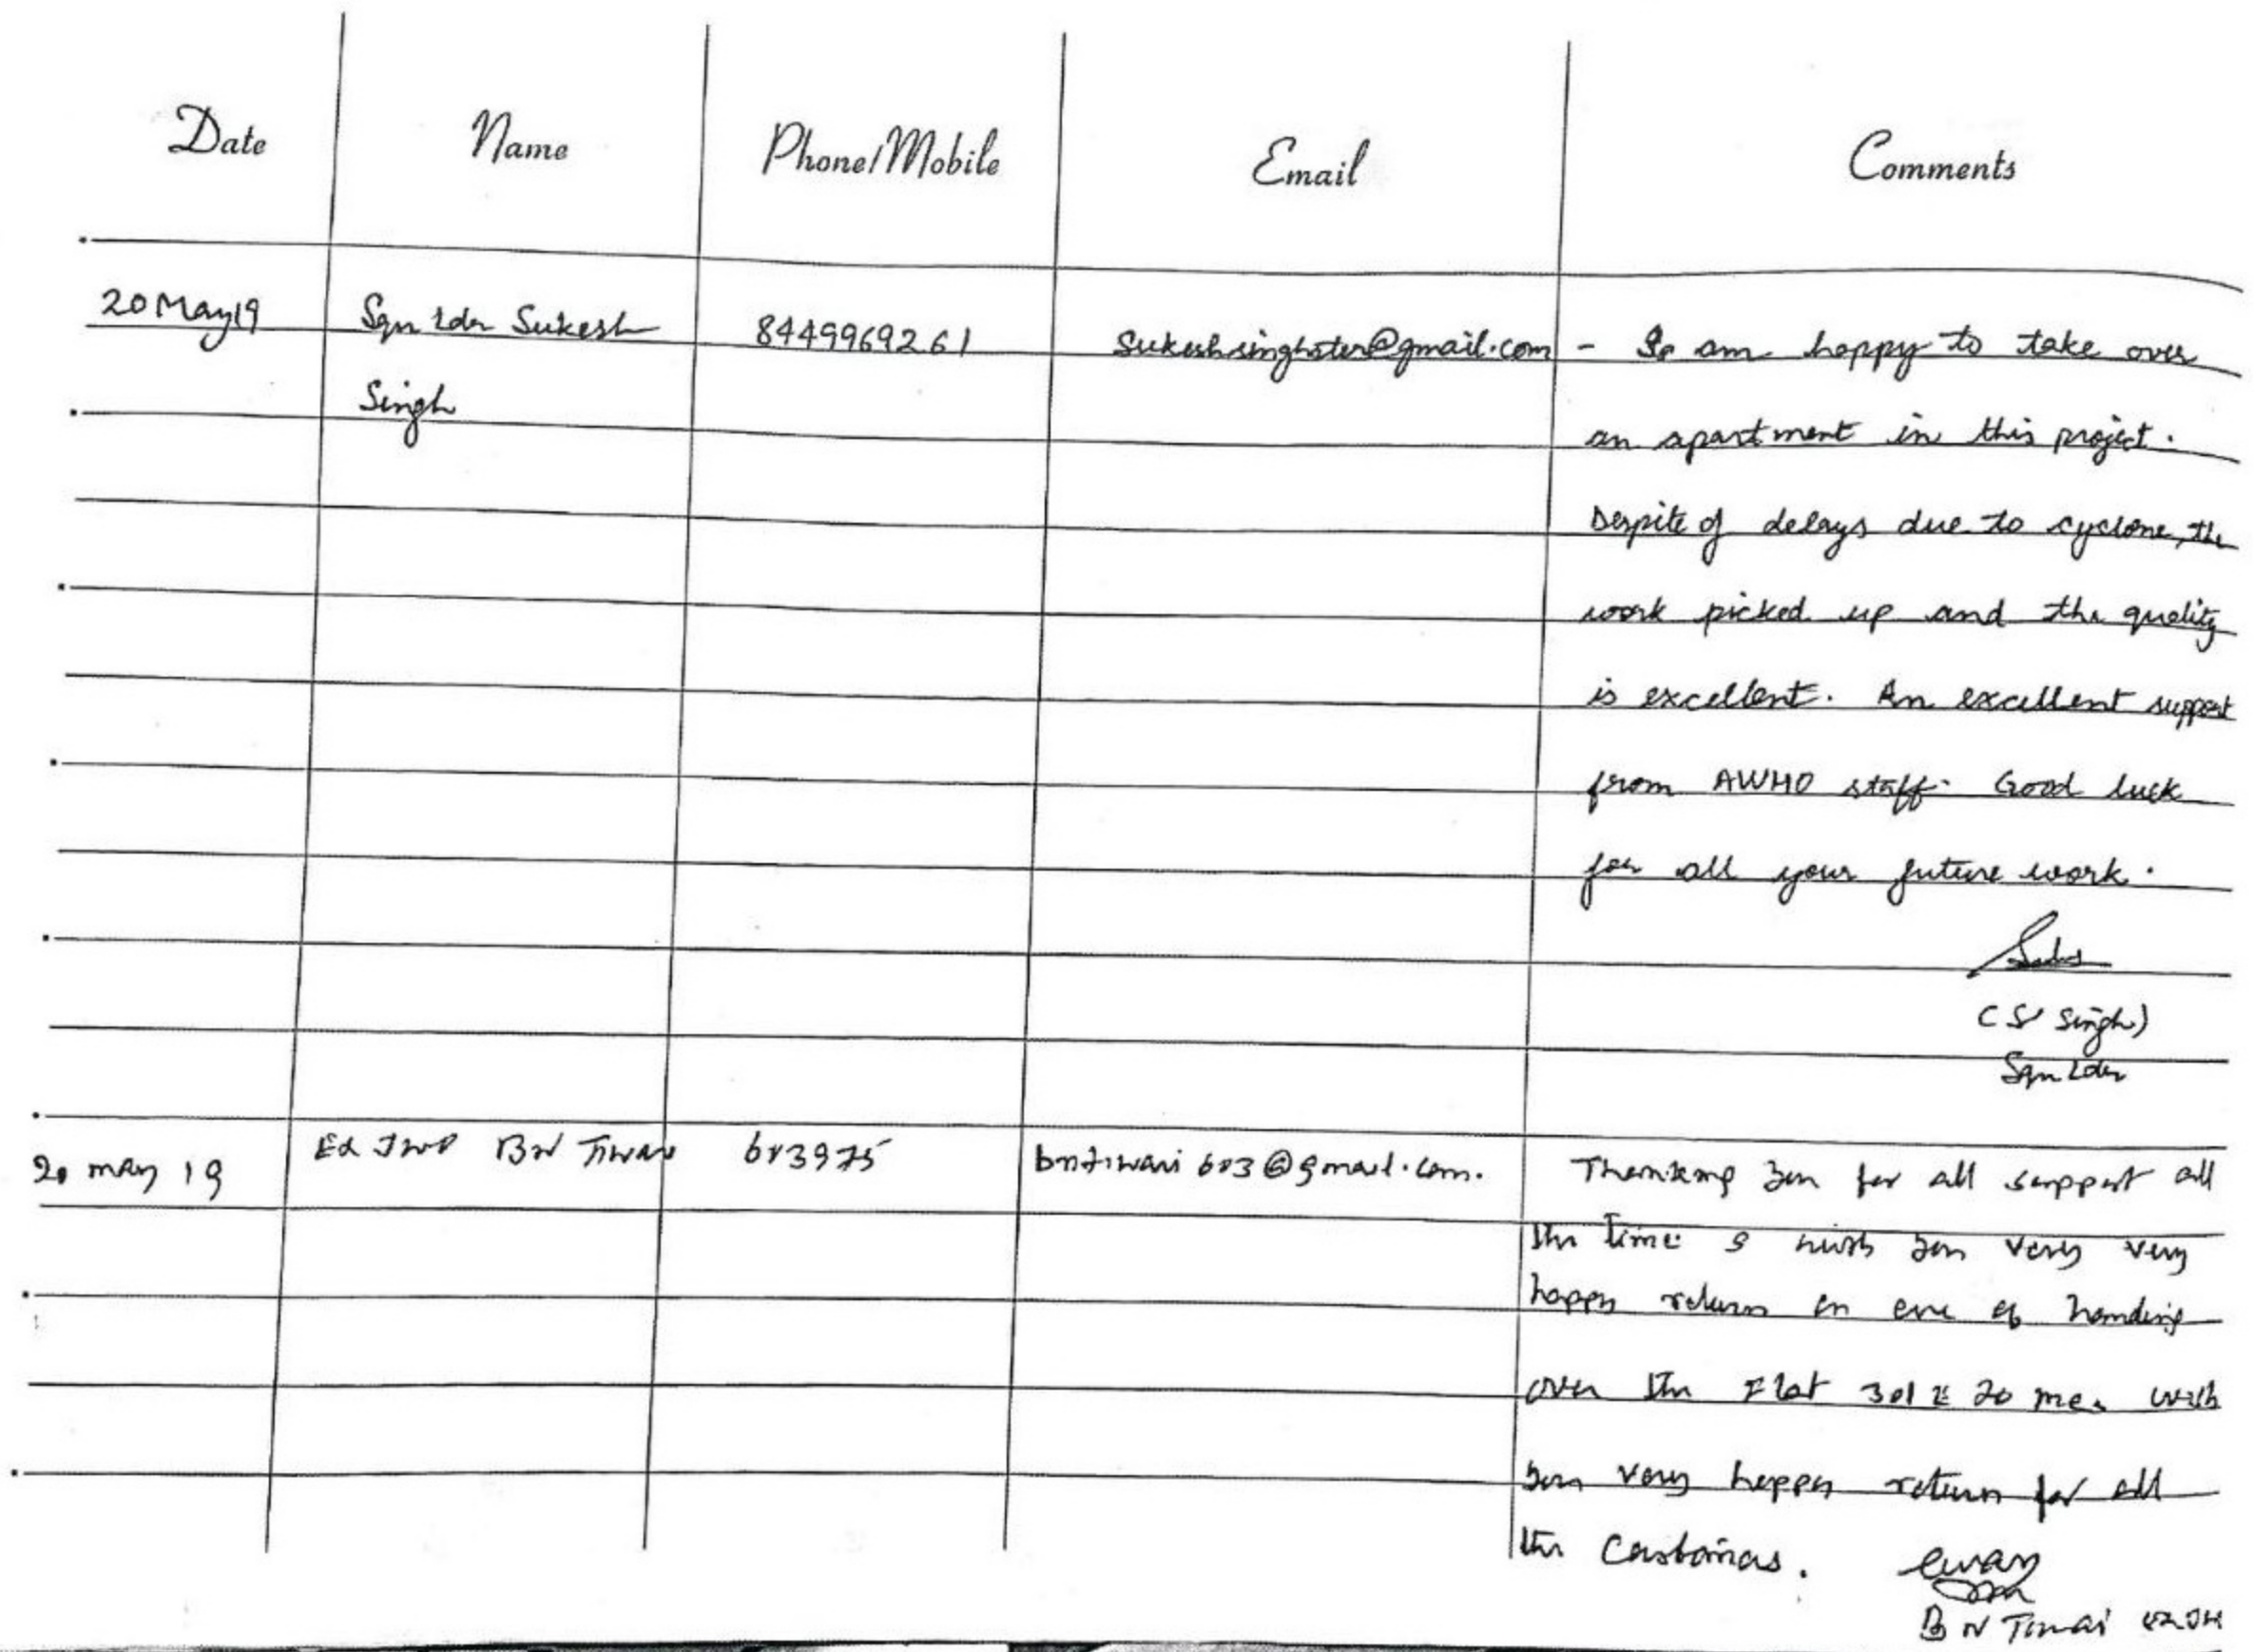 Date Name Phone/Mobile Email Comments
20 May 19 Sqn Ldr Sukesh 8449969261 Sukeshsinghster@gmail.com - So am happy to take over
Singh
an apartment in this project.
Despite of delays due to cyclone, the
work picked up and the quality
is excellent. An excellent support
from AWHO staff. Good luck
for all your future work.
(S Singh)
Sqn Ldr
20 may 19 BN Tiwari bntiwari603@gmail.com. Thanking you for all support all
the time & wish you very very
happy return on eve of handing
over the Flat 301 E 20 wish
you very happy return for all
the
B N Tiwari